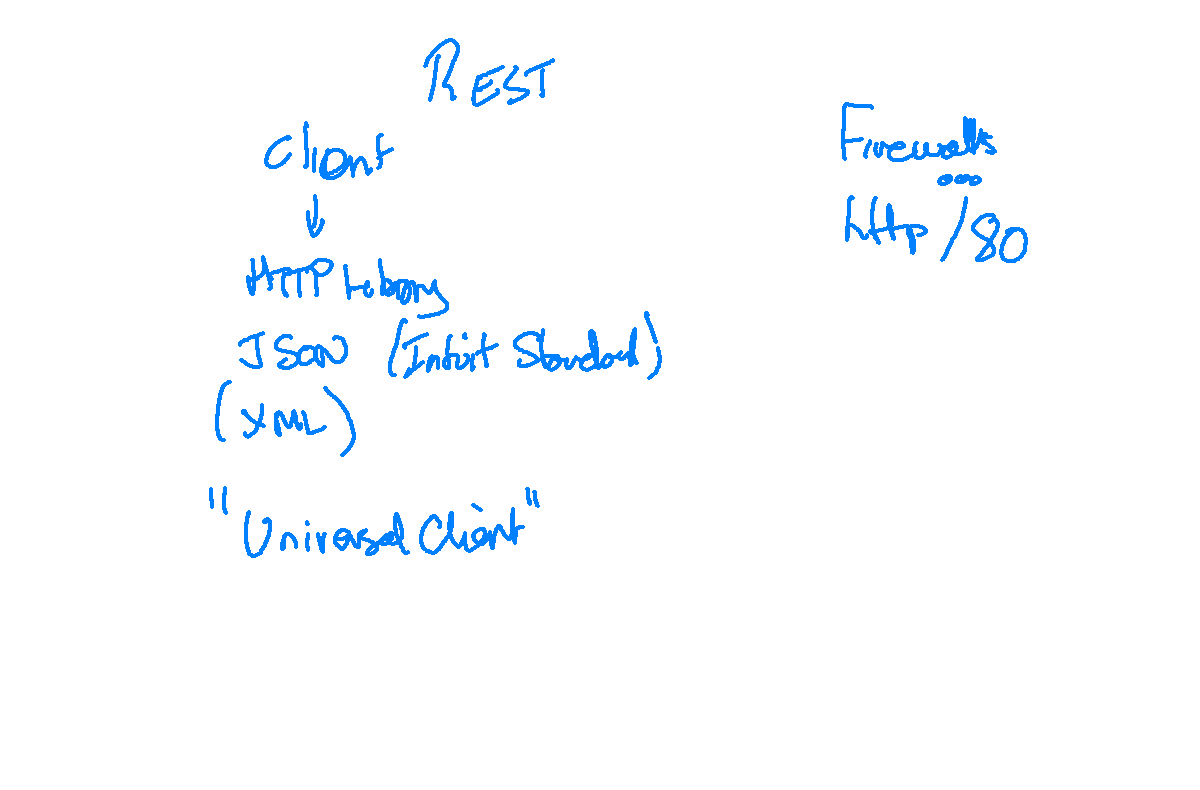 REST
Client
HTTP Library
JSON (Intuit Standard)
(XML)
"Universal Client"
Firewalls
http / 80